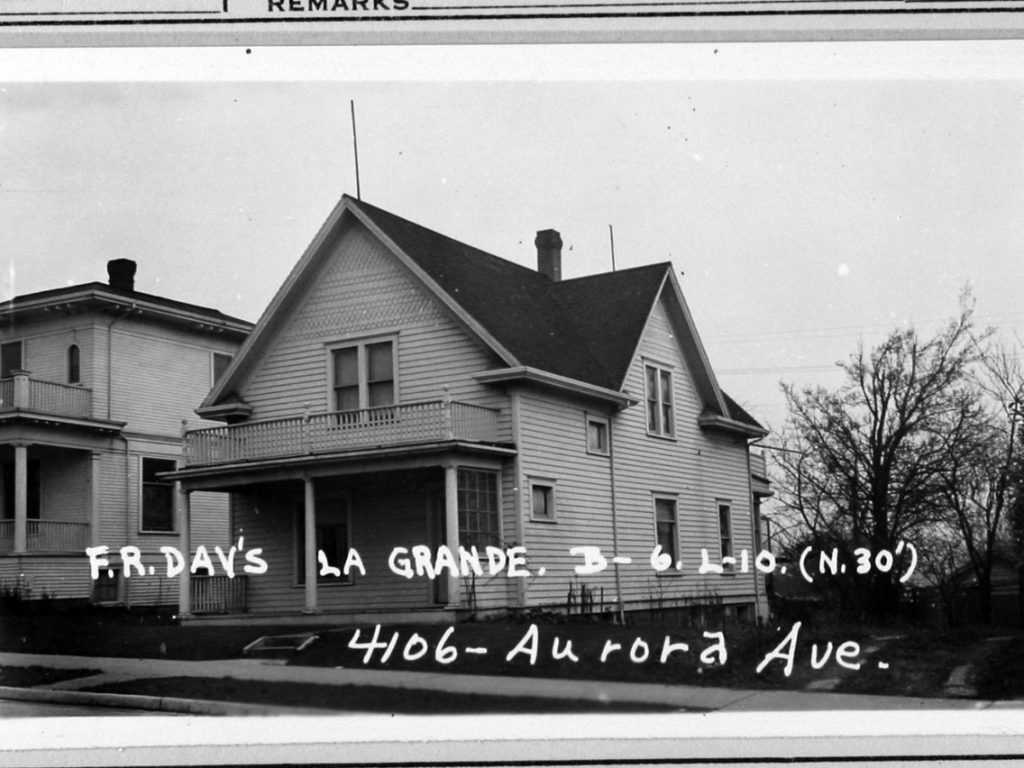 REMARKS
F.R. DAV'S LA GRANDE. B-6. L-10. (N.30')
4106-Aurora Ave.